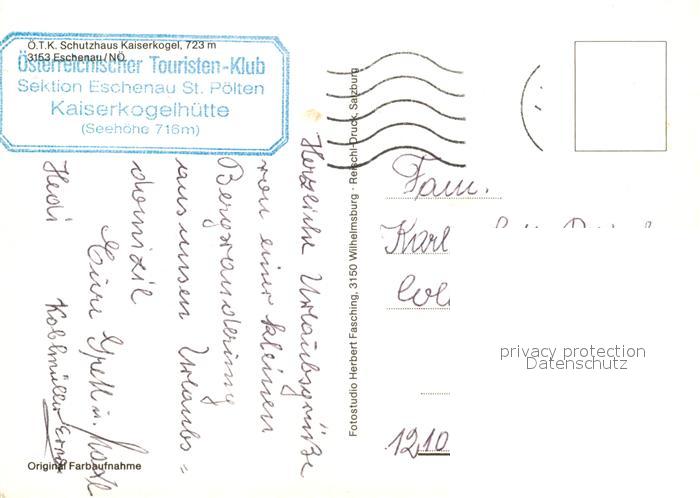 Ö.T.K. Schutzhaus Kaiserkogel, 723 m
3153 Eschenau/NÖ.
Österreichischer Touristen-Klub
Sektion Eschenau St. Pölten
Kaiserkogelhütte
(Seehöhe 716m)
Herzliche Urlaubsgrüße
von einer kleinen
Bergwanderung
aus unsen Urlaubs=
domizil
Eure Gretl u.
Hedi
Fotostudio Herbert Fasching, 3150 Wilhelmsburg · Reischl-Druck, Salzburg
Fam.
Karl
1210
privacy protection
Datenschutz
Original Farbaufnahme